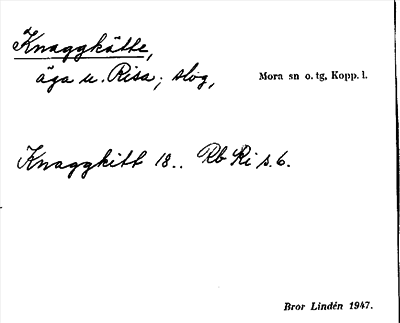 Knaggkätte,
äga u. Risa; slog, Mora sn o. tg, Kopp. l.
Knaggkitt 18.. Rb Ri s. 6.
Bror Lindén 1947.